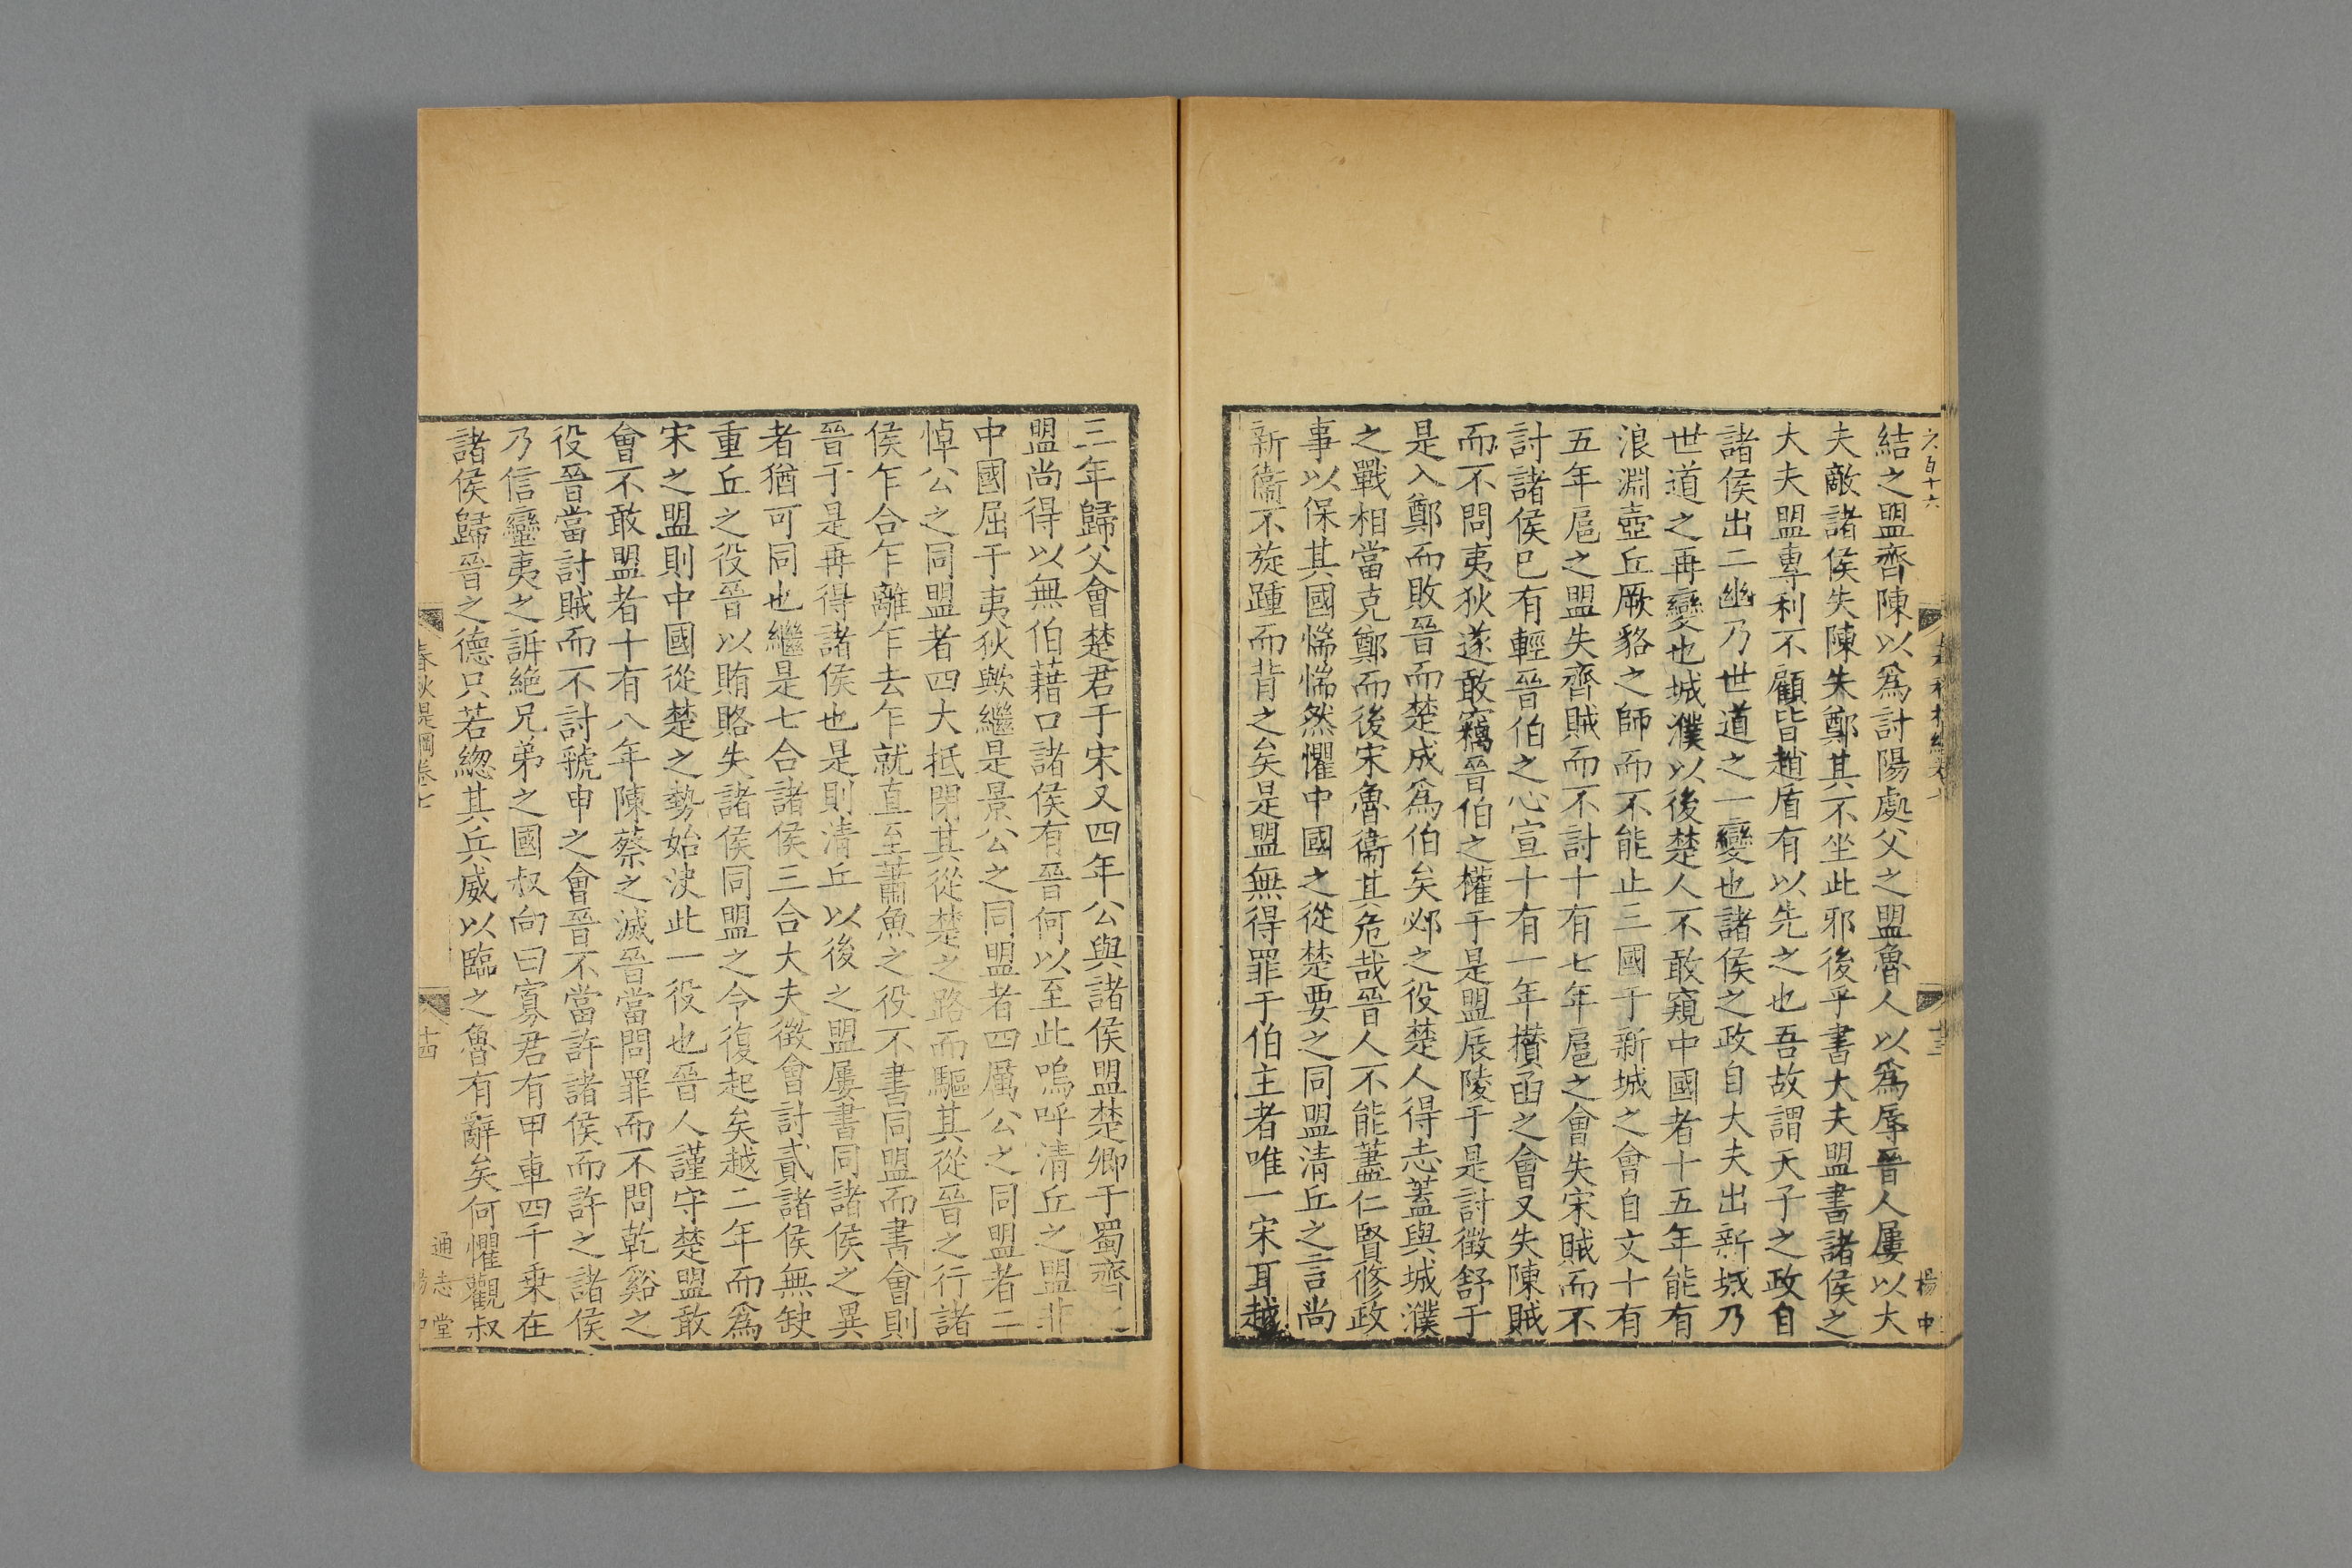 六百十六
楊中
結之盟齊陳以爲討陽處父之盟魯人以爲辱晉人屢以大
夫敵諸侯失陳失鄭其不坐此邪後乎書大夫盟書諸侯之
大夫盟專利不顧皆趙盾有以先之也吾故謂天子之政自
諸侯出二幽乃世道之一變也諸侯之政自大夫出新城乃
世道之再變也城濮以後楚人不敢窺中國者十五年能有
浪淵壺丘厥貉之師而不能止三國于新城之會自文十有
五年扈之盟失齊賊而不討十有七年扈之會失宋賊而不
討諸侯已有輕晉伯之心宣十有一年欑函之會又失陳賊
而不問夷狄遂敢竊晉伯之權于是盟辰陵于是討徵舒于
是入鄭而敗晉而楚成爲伯矣邲之役楚人得志蓋與城濮
之戰相當克鄭而後宋魯衞其危哉晉人不能藎仁賢修政
事以保其國惴惴然懼中國之從楚要之同盟清丘之言尚
新衞不旋踵而背之矣是盟無得罪于伯主者唯一宋耳越
三年歸父會楚君于宋又四年公與諸侯盟楚卿于蜀齊之
盟尚得以無伯藉口諸侯有晉何以至此嗚呼清丘之盟非
中國屈于夷狄歟繼是景公之同盟者四厲公之同盟者二
悼公之同盟者四大抵閉其從楚之路而驅其從晉之行諸
侯乍合乍離乍去乍就直至蕭魚之役不書同盟而書會則
晉于是再得諸侯也是則清丘以後之盟屢書同諸侯之異
者猶可同也繼是七合諸侯三合大夫徵會討貳諸侯無缺
重丘之役晉以賄賂失諸侯同盟之令復起矣越二年而爲
宋之盟則中國從楚之勢始決此一役也晉人謹守楚盟敢
會不敢盟者十有八年陳蔡之滅晉當問罪而不問乾谿之
役晉當討賊而不討虢申之會晉不當許諸侯而許之諸侯
乃信蠻夷之訴絕兄弟之國叔向曰寡君有甲車四千乗在
諸侯歸晉之德只若總其兵威以臨之魯有辭矣何懼觀叔
春秋提綱卷七
十四
通志堂
楊中